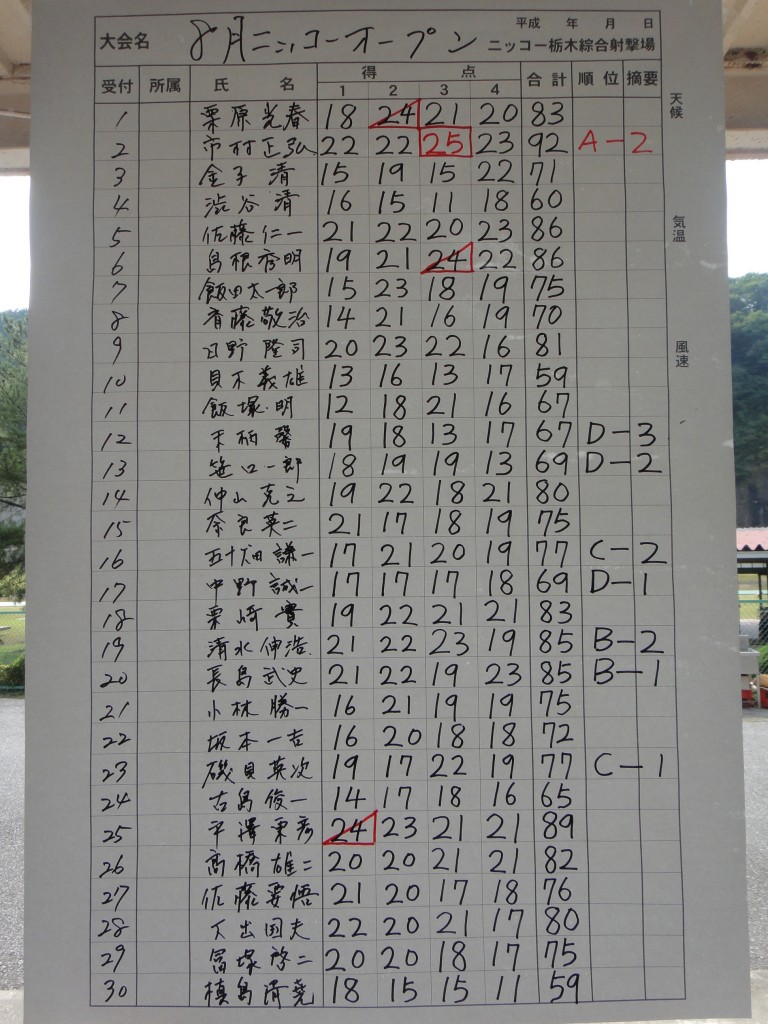 平成 年 月 日
大会名 8月ニッコーオープン ニッコー栃木綜合射撃場
受付 所属 氏 名 得 点 合計 順位 摘要
1 2 3 4
天候
1 栗原光春 18 24 21 20 83
2 市村正弘 22 22 25 23 92 A-2
3 金子 清 15 19 15 22 71
4 渋谷 清 16 15 11 18 60
5 佐藤仁一 21 22 20 23 86
気温
6 島根秀明 19 21 24 22 86
7 飯田太一郎 15 23 18 19 75
8 斉藤敬治 14 21 16 19 70
9 日野隆司 20 23 22 16 81
風速
10 貝木義雄 13 16 13 17 59
11 飯塚 明 12 18 21 16 67
12 19 18 13 17 67 D-3
13 笹口一郎 18 19 19 13 69 D-2
14 仲山克之 19 22 18 21 80
15 奈良英二 21 17 18 19 75
16 五十畑謙一 17 21 20 19 77 C-2
17 中野誠一 17 17 17 18 69 D-1
18 栗崎 實 19 22 21 21 83
19 清水伸浩 21 22 23 19 85 B-2
20 長島武史 21 22 19 23 85 B-1
21 小林勝一 16 21 19 19 75
22 坂本一吉 16 20 18 18 72
23 磯貝英次 19 17 22 19 77 C-1
24 古島俊一 14 17 18 16 65
25 24 23 21 21 89
26 高橋雄二 20 20 21 21 82
27 佐藤要悟 21 20 17 18 76
28 大出国夫 22 20 21 17 80
29 冨塚啓二 20 20 18 17 75
30 槙島清堯 18 15 15 11 59